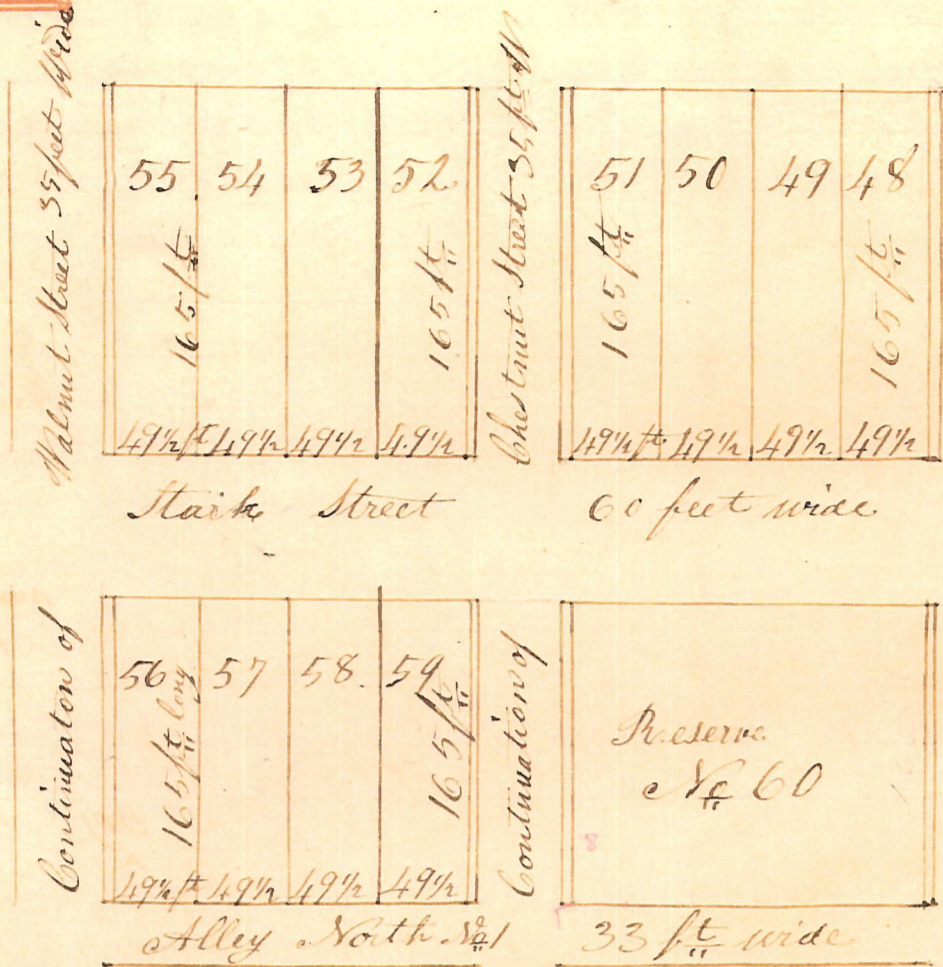 Walnut Street 35 feet Wide
55 54 53 52
165 ft 165 ft
49½ ft 49½ 49½ 49½
Chestnut Street 35 ft W
51 50 49 48
165 ft 165 ft
49½ ft 49½ 49½ 49½
Stark Street 60 feet wide
Continuaton of
56 57 58. 59
165 ft long 165 ft
49½ ft 49½ 49½ 49½
Continuation of
Reserve
No 60
8
Alley North No 1 33 ft wide